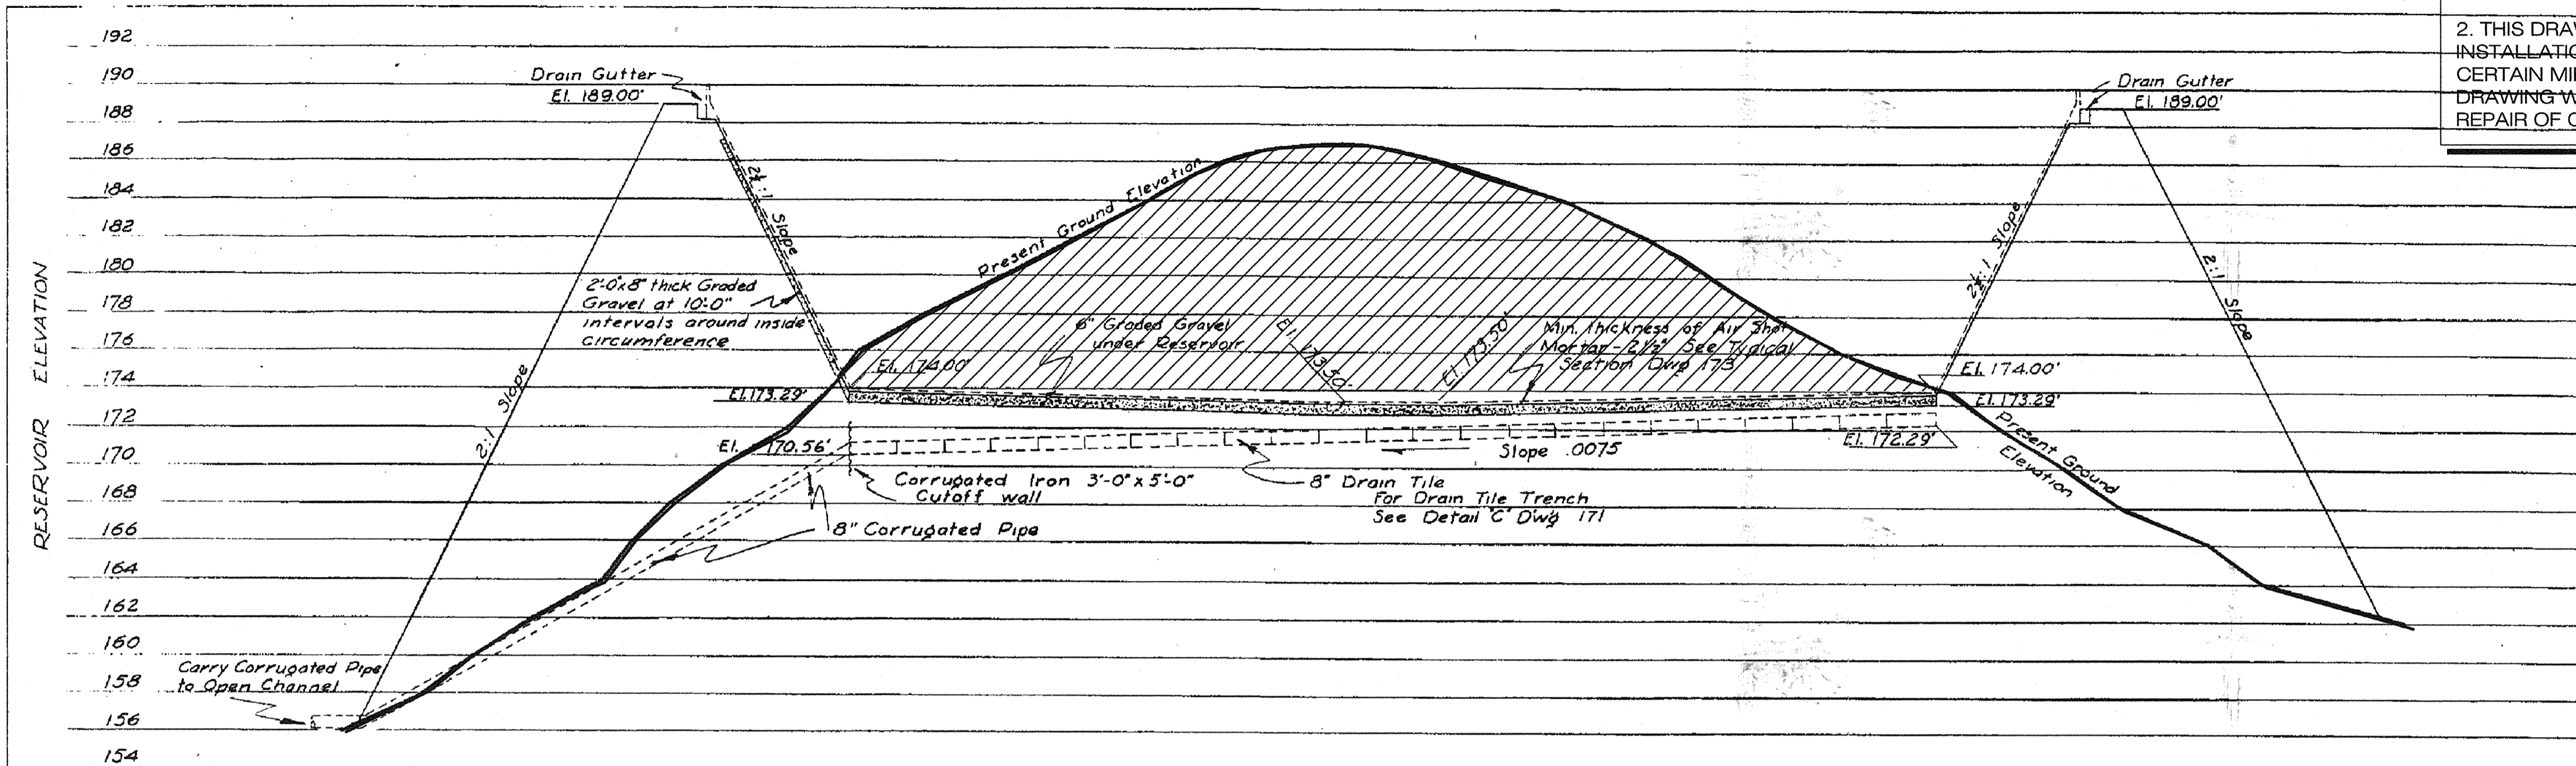 192
190
188
186
184
182
180
178
176
174
172
170
168
166
164
162
160
158
156
154
RESERVOIR ELEVATION
Drain Gutter
El. 189.00'
2:1 Slope
Slope
2'-0"x8" thick Graded
Gravel at 10'-0"
intervals around inside
circumference
Present Ground Elevation
6" Graded Gravel
under Reservoir
El. 173.50'
El. 173.50'
Min. thickness of Air Shot
Mortar - 2½" See Typical
Section Dwg 173
El. 174.00'
El. 173.29'
El. 170.56'
Corrugated Iron 3'-0" x 5'-0"
Cutoff wall
8" Corrugated Pipe
8" Drain Tile
For Drain Tile Trench
See Detail "C" Dwg 171
Slope .0075
El. 172.29'
Carry Corrugated Pipe
to Open Channel
Drain Gutter
El. 189.00'
Slope
2:1 Slope
El. 174.00'
El. 173.29'
Present Ground
Elevation
2. THIS DRA
INSTALLATIO
CERTAIN MI
DRAWING W
REPAIR OF